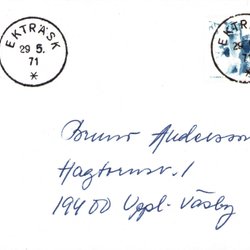 EKTRÄSK
29 5.
71
EKTRÄSK
29
71
Bruno Andersson
Hagtornsv. 1
194 00 Uppl-Väsby